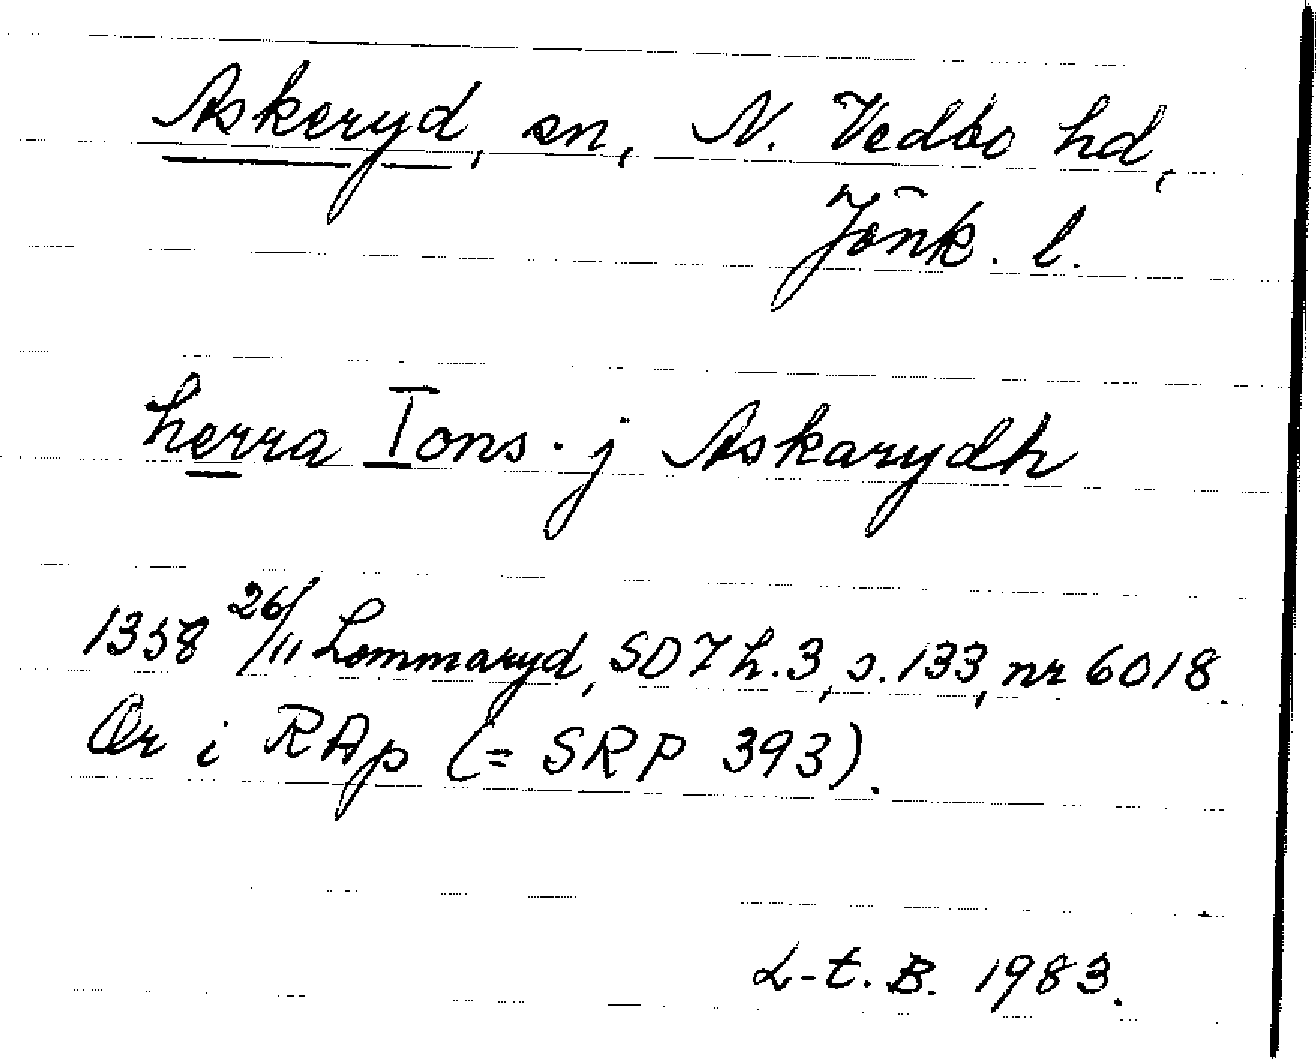 Askeryd, sn, N. Vedbo hd,
Jönk. l.
herra Ions. j Askarydh
1358 26/11 Lommaryd, SD 7 h. 3, s. 133, nr 6018.
Or i RAp (= SRP 393).
L-t. B. 1983.